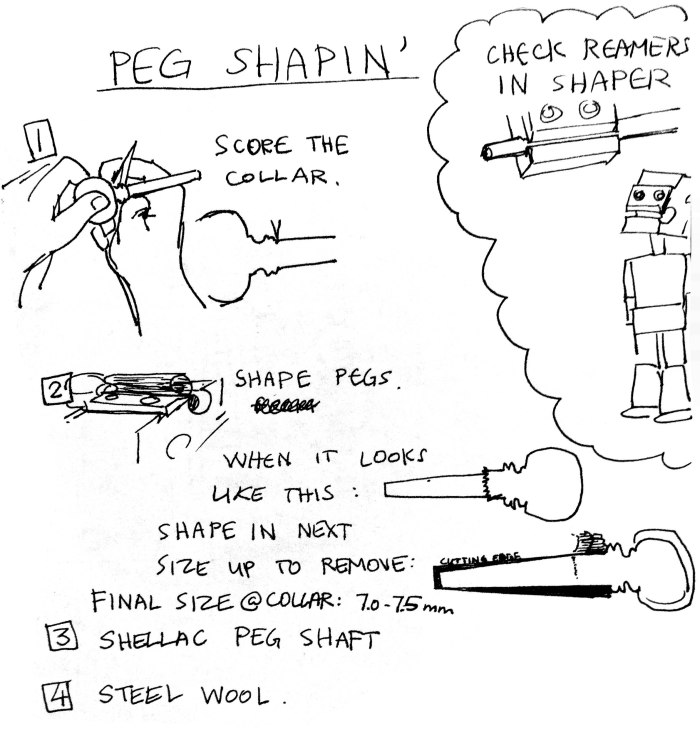 PEG SHAPIN'
CHECK REAMERS
IN SHAPER
1
SCORE THE
COLLAR.
2
SHAPE PEGS.
WHEN IT LOOKS
LIKE THIS:
SHAPE IN NEXT
SIZE UP TO REMOVE:
CUTTING EDGE
FINAL SIZE @ COLLAR: 7.0-7.5mm
3 SHELLAC PEG SHAFT
4 STEEL WOOL.